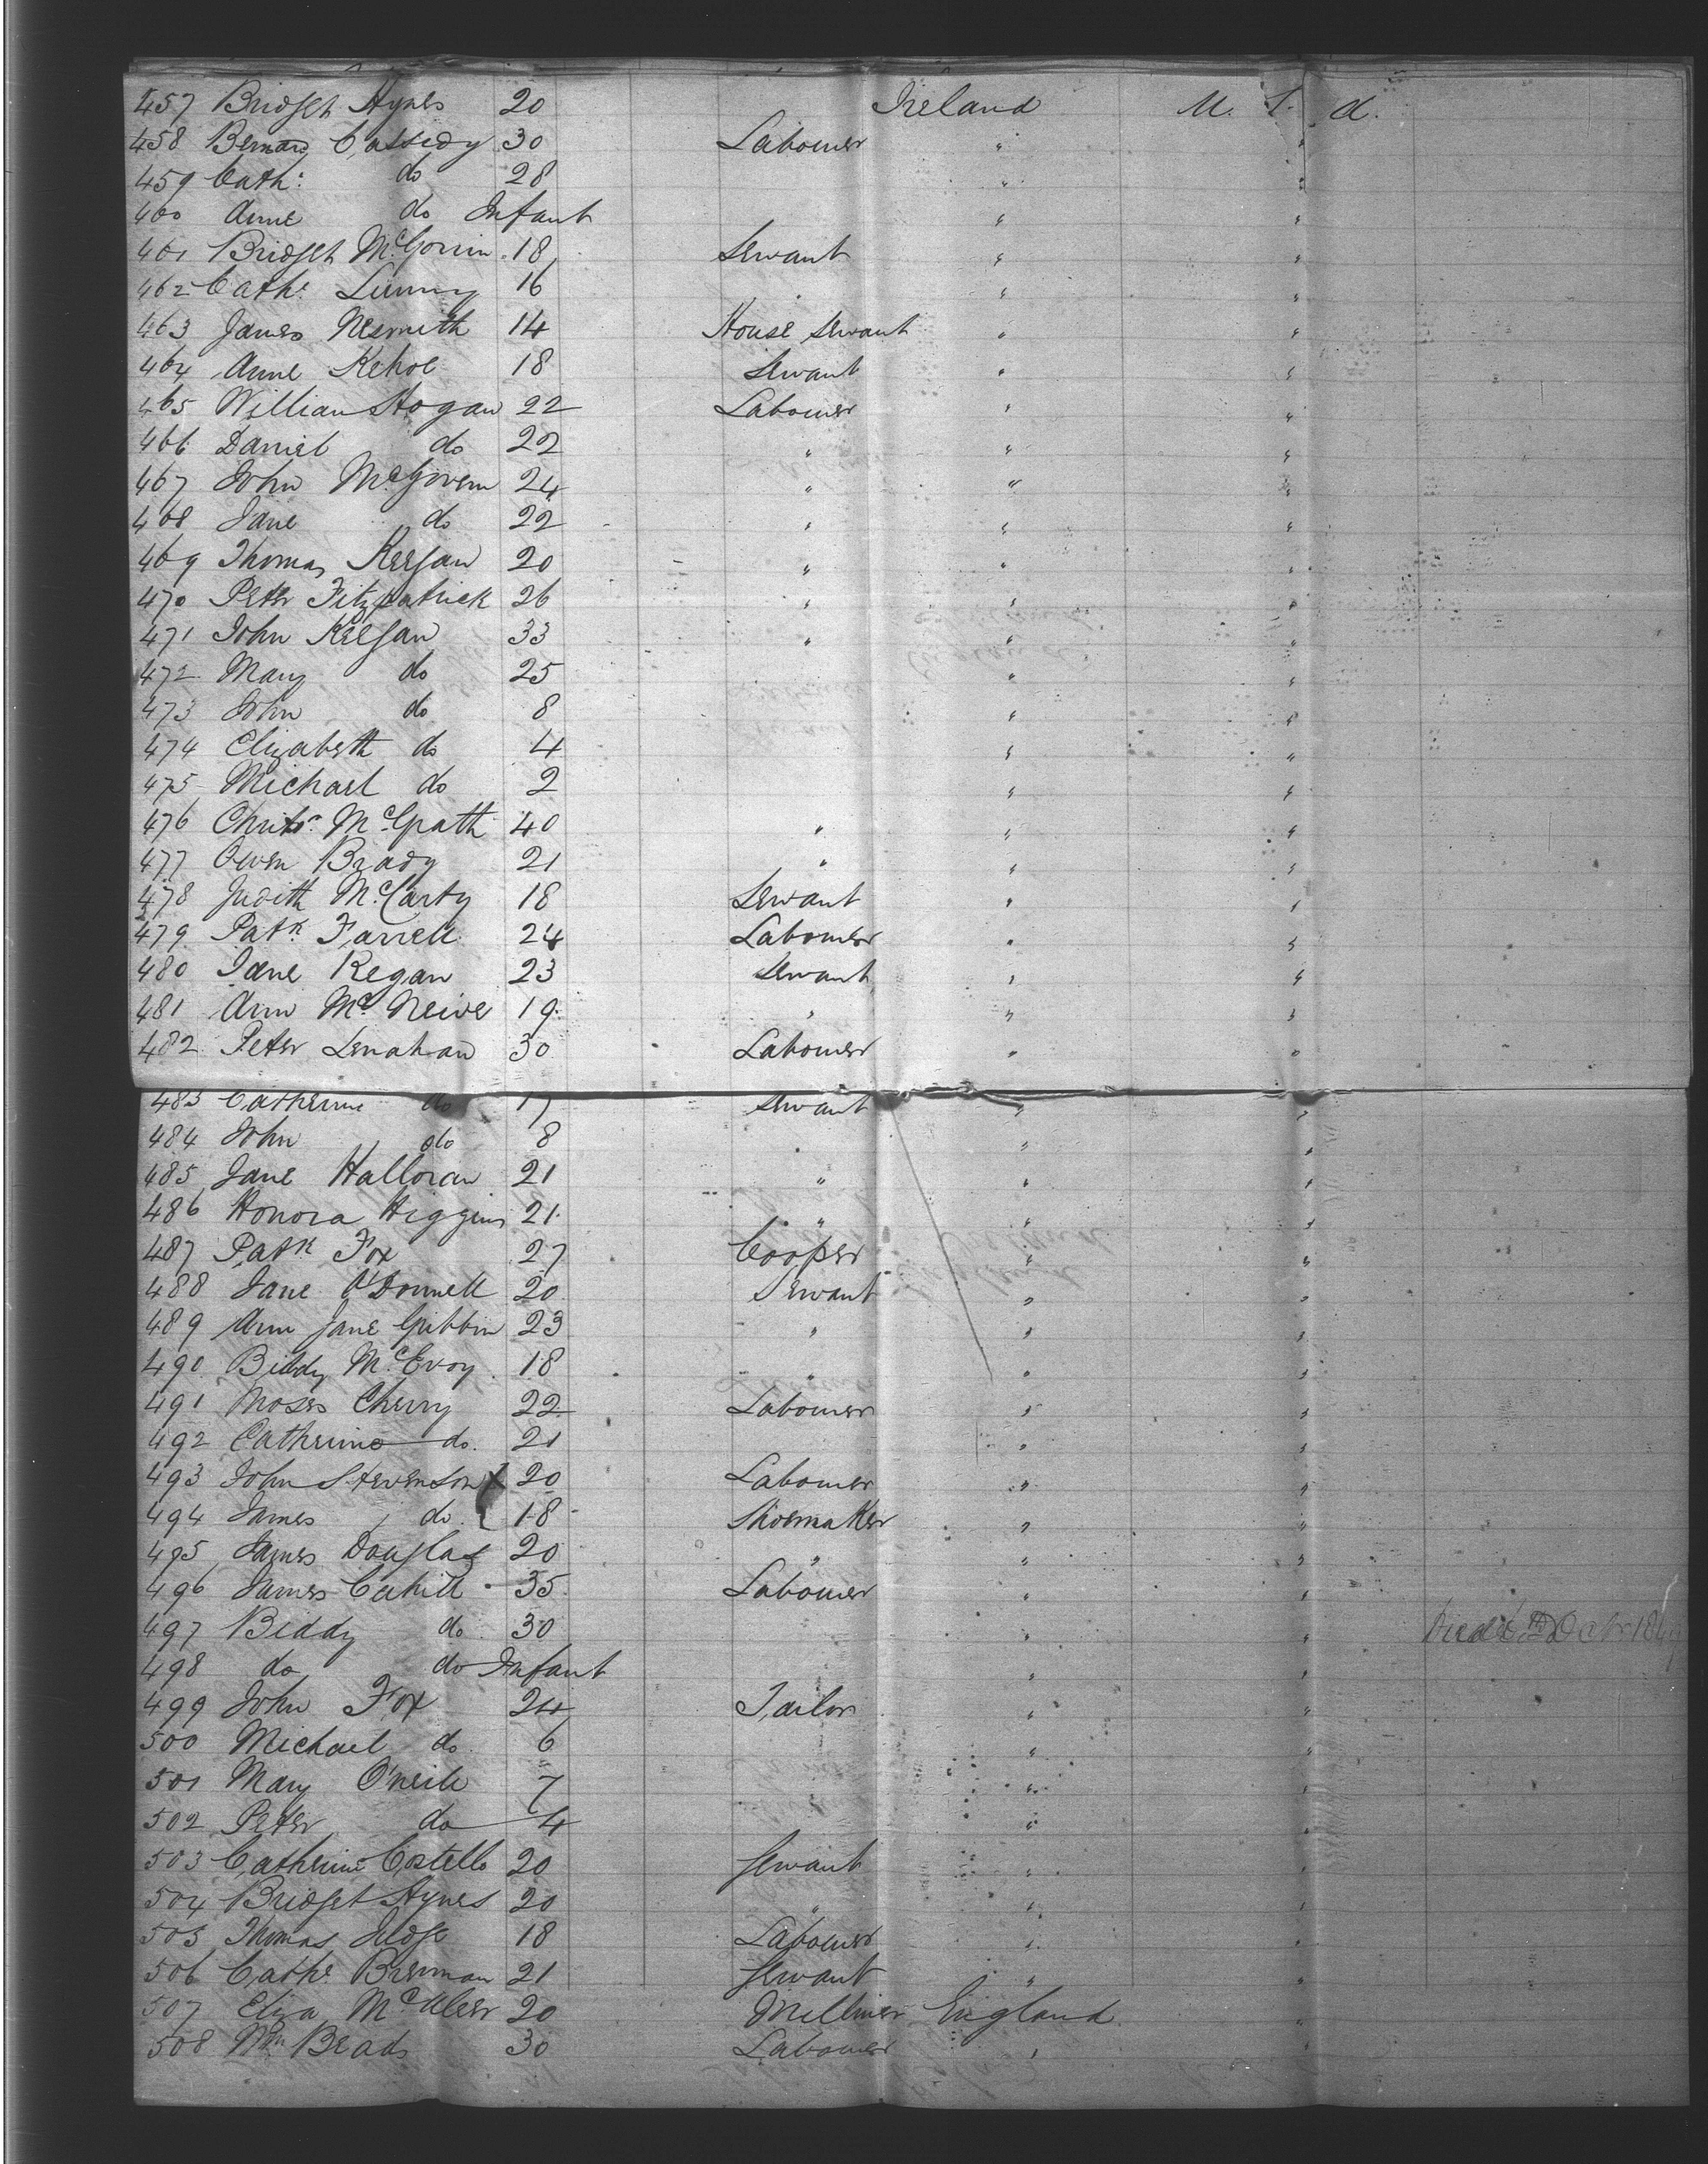 457 Bridget Hynes 20 Ireland U. S. A.
458 Bernard Cassidy 30 Labourer "
459 Cath: do 28 " "
460 Anne do Infant " "
461 Bridget McGovrin 18 Servant " "
462 Cathe Lunny 16 " "
463 James Nesmith 14 House Servant " "
464 Anne Kehoe 18 Servant " "
465 William Hogan 22 Labourer " "
466 Daniel do 22 " " "
467 John McGovern 24 " " "
468 Jane do 22 " " "
469 Thomas Keegan 20 " " "
470 Peter Fitzpatrick 26 " " "
471 John Keegan 33 " " "
472 Mary do 25 " "
473 John do 8 " "
474 Elizabeth do 4 " "
475 Michael do 2 " "
476 Christr McGrath 40 " " "
477 Owen Brady 21 " " "
478 Judith McCarty 18 Servant " "
479 Patk Farrell 24 Labourer " "
480 Jane Regan 23 Servant " "
481 Ann McNeive 19 " " "
482 Peter Lenahan 30 Labourer " "
483 Catherine do 17 Servant " "
484 John do 8 " " "
485 Jane Halloran 21 " " "
486 Honora Higgins 21 " " "
487 Patk Fox 27 Cooper " "
488 Jane O'Donnell 20 Servant " "
489 Ann Jane Gibbin 23 " " "
490 Biddy McEvoy 18 " " "
491 Moses Cherry 22 Labourer " "
492 Catherine do. 21 " "
493 John Stevenson 20 Labourer " "
494 James do. 18 Shoemaker " "
495 James Douglas 20 " " "
496 James Cahill 35 Labourer " "
497 Biddy do 30 " "
498 do do Infant " "
499 John Fox 24 Tailor " "
500 Michael do 6 " "
501 Mary O'neile 7 " "
502 Peter do 4 "
503 Catherine Costello 20 Servant " "
504 Bridget Hynes 20 " " "
505 Thomas Judge 18 Labourer " "
506 Cathe Brennan 21 Servant " "
507 Eliza McAleer 20 Milliner England "
508 Wm Beads 30 Labourer " "